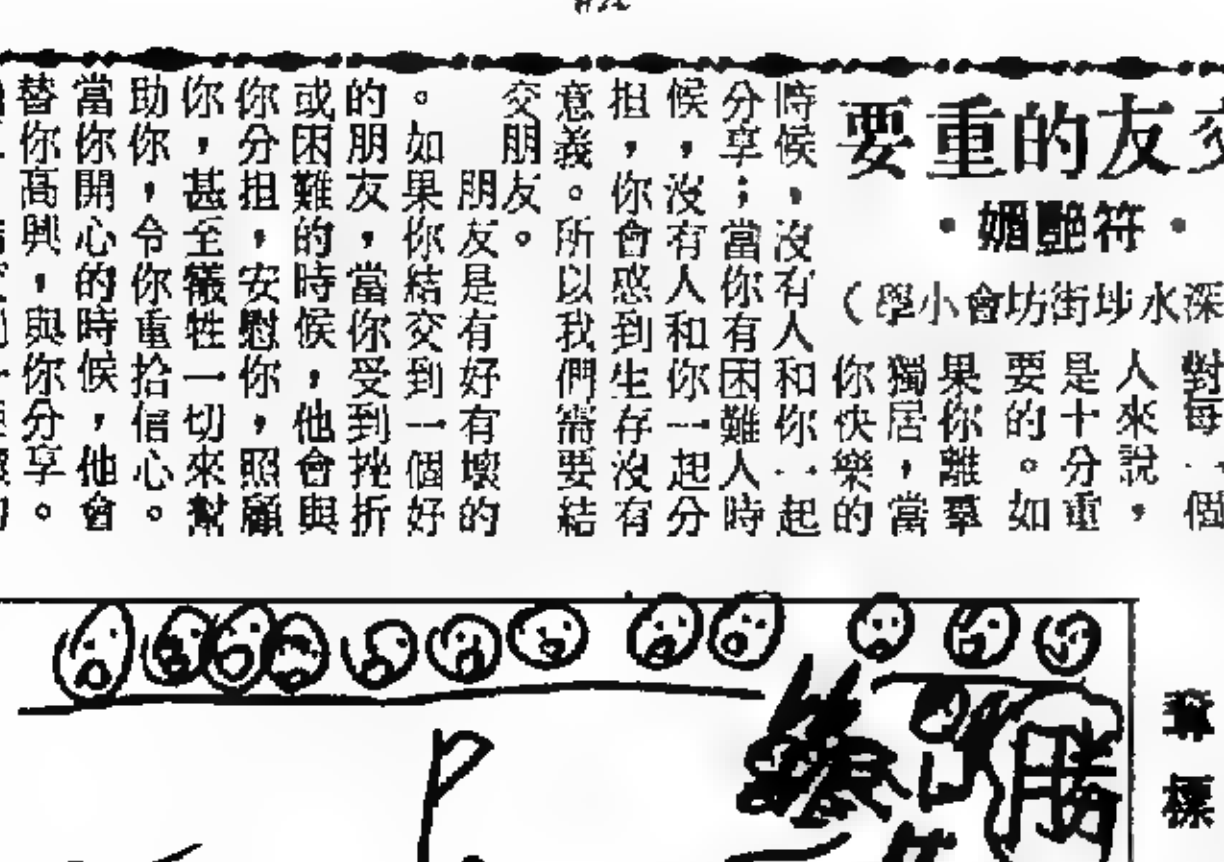 交友的重要
·符艷媚·
深水埗街坊會小學（
對每一個
人來說，
是十分重
要的。如
果你離羣
獨居，當
你快樂的
時候，沒有人和你一起
分享；當你有困難人時
候，沒有人和你一起分
担，你會感到生存沒有
意義。所以我們需要結
交朋友。
朋友是有好有壞的
。如果你結交到一個好
的朋友，當你受到挫折
或困難的時候，他會與
你分担，安慰你，照顧
你，甚至犧牲一切來幫
助你，令你重拾信心。
當你開心的時候，他會
替你高興，與你分享。
奪標
勝